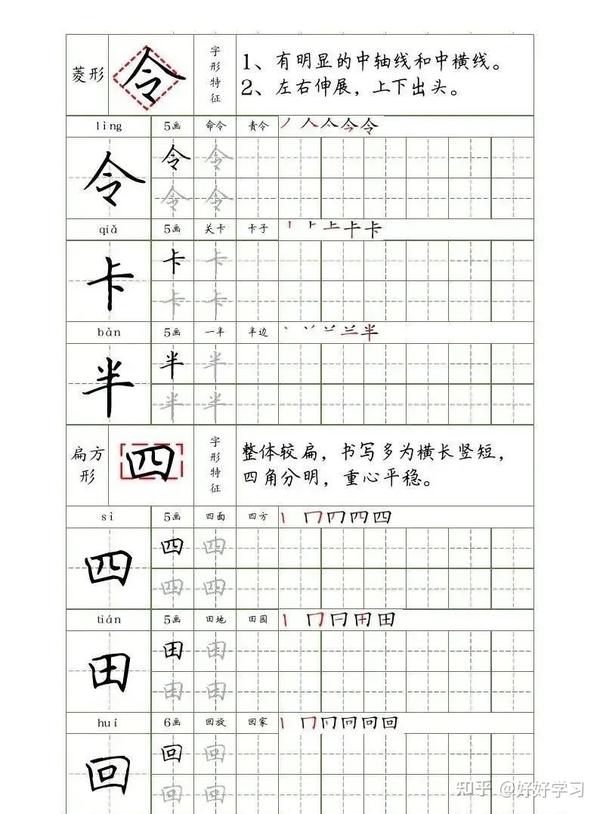 菱形
令
字形特征
1、有明显的中轴线和中横线。
2、左右伸展，上下出头。
lìng 5画 命令 责令
丿 人 人 今 令
令 令 令
令 令
qiǎ 5画 关卡 卡子
丨 卜 上 卡 卡
卡 卡 卡
卡 卡
bàn 5画 一半 半边
丶 丷 兰 半
半 半 半
半 半
扁方形
四
字形特征
整体较扁，书写多为横长竖短，
四角分明，重心平稳。
sì 5画 四面 四方
丨 冂 四 四
四 四 四
四 四
tián 5画 田地 田园
丨 冂 日 田 田
田 田 田
田 田
huí 6画 回旋 回家
丨 冂 冋 回 回
回 回 回
回 回
知乎 @好好学习